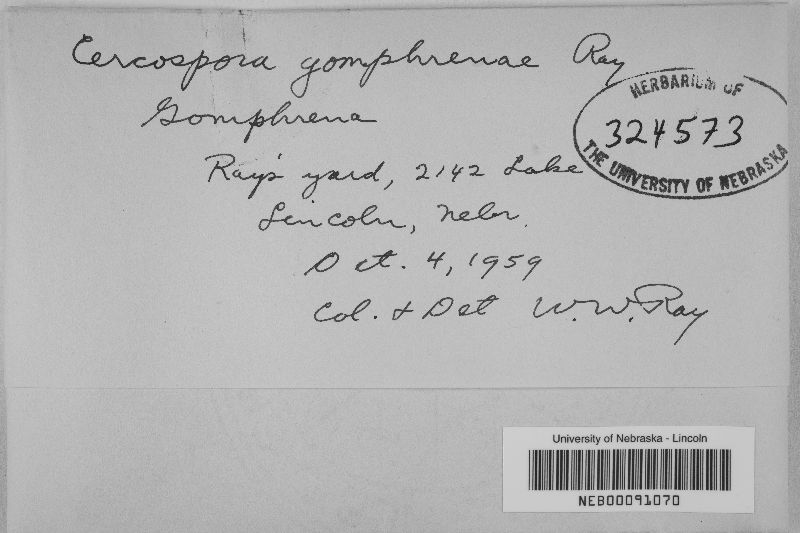 Cercospora gomphrenae Ray
HERBARIUM OF
324573
THE UNIVERSITY OF NEBRASKA
Gomphrena
Ray's yard, 2142 Lake
Lincoln, Nebr.
Oct. 4, 1959
Col. & Det W. W. Ray
University of Nebraska - Lincoln
NEB00091070